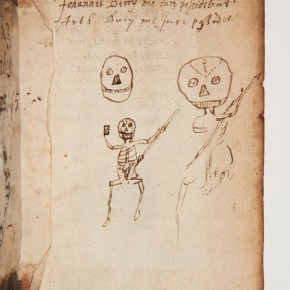 Johannes Berry me jure possidebat
Arth: Bury me jure possidet